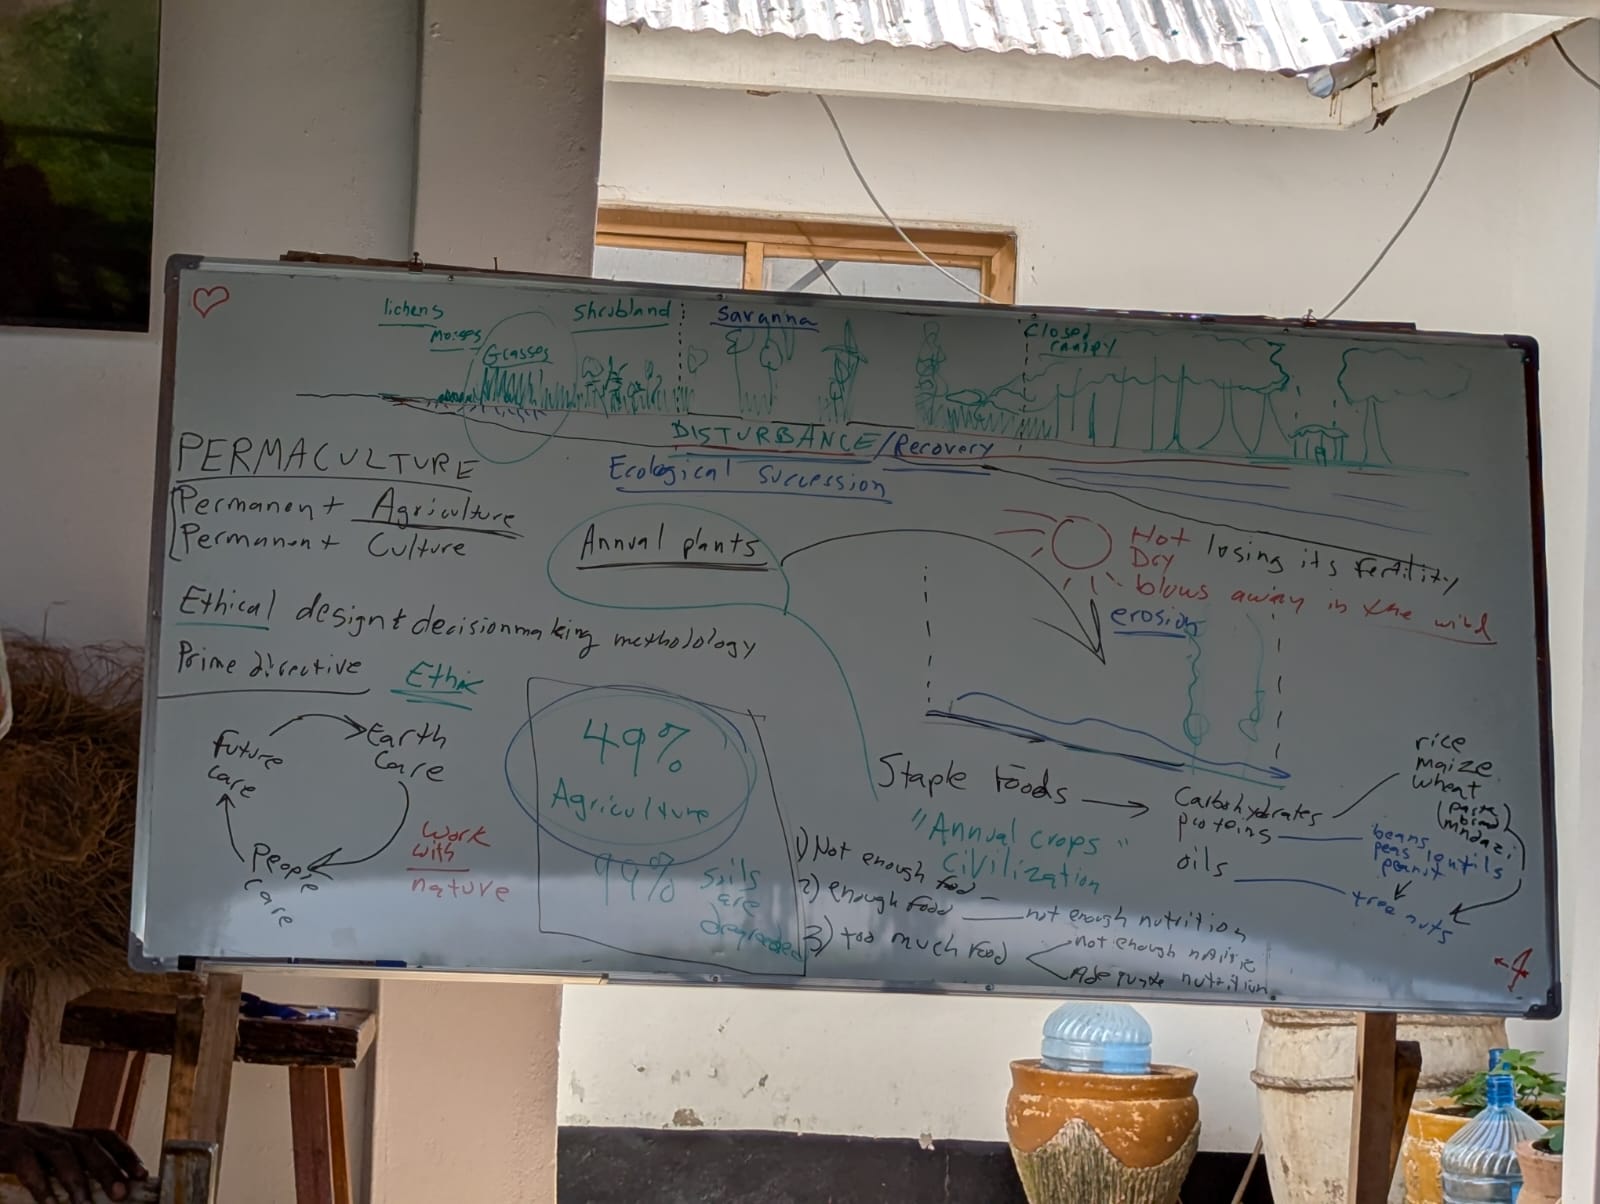 lichens
Mosses
Grasses
Shrubland
Savanna
Closed
canopy
DISTURBANCE/Recovery
Ecological Succession
PERMACULTURE
Permanent Agriculture
Permanent Culture
Ethical design & decisionmaking methodology
Prime directive
Ethic
Future
Care
Earth
Care
People
Care
Work
with
nature
Annual plants
49%
Agriculture
99% soils
are
degraded
Hot
Dry
losing its fertility
blows away in the wind
erosion
Staple Foods
Carbohydrates
proteins
oils
rice
maize
wheat
beans
peas lentils
peanut
tree nuts
"Annual crops"
Civilization
1) Not enough food
2) enough food
not enough nutrition
3) too much food
not enough
Adequate nutrition